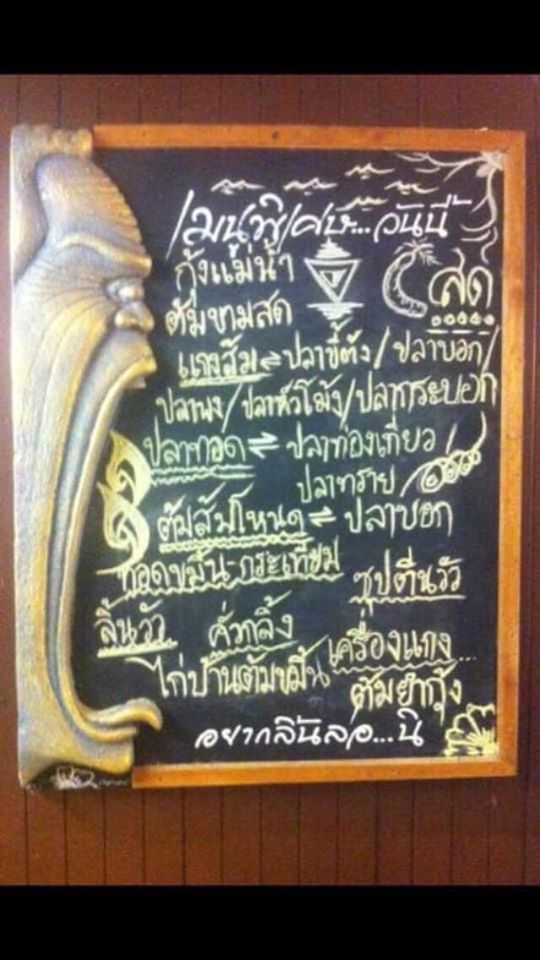 เมนูพิเศษ...วันนี้
กุ้งแม่น้ำ
สด
ต้มขามสด
แกงส้ม ⇌ ปลาขี้ตัง / ปลาบอก /
ปลานง / ปลาหัวโม้ง / ปลากระบอก
ปลาทอด ⇌ ปลาท่องเที่ยว /
ปลาทราย /
ต้มส้มโหนด ⇌ ปลาบอก
ทอดขมิ้น-กระเทียม
ซุปตีนวัว
ลิ้นวัว คั่วกลิ้ง เครื่องแกง...
ไก่บ้านต้มขมิ้น
ต้มยำกุ้ง
อยากลินลอ...นิ